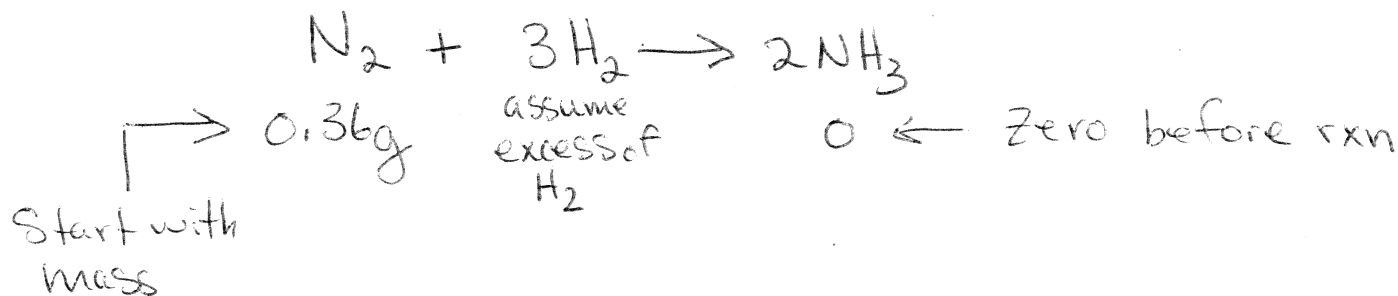 N₂ + 3H₂ → 2NH₃
→ 0.36g assume excess of H₂ 0 ← Zero before rxn
Start with
mass